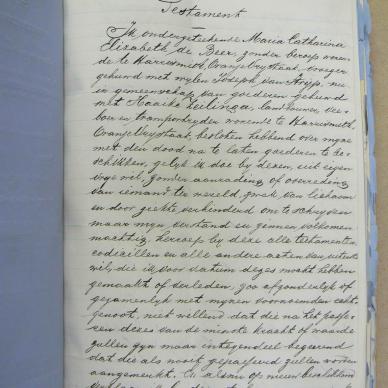 Testament
Ik ondergeteekende Maria Catharina
Elizabeth de Beer, zonder beroep wonen-
de te Harrismith, Oranje Vrystaat, vroeger
gehuwd met wylen Joseph van Strijp, nu
in gemeenschap van goederen gehuwd
met Haaike Teilinga, landbouwer,
boer en transportryder wonende te Harrismith,
Oranje Vrystaat, besloten hebbende over myne
met den dood na te laten goederen te be-
schikken, gelyk ik doe by dezen, uit eigen
vrye wil, zonder aanrading of overreding
van iemand ter wereld, zwak van lichaam
en door ziekte verhinderd om te schryven
maar myn verstand en zinnen volkomen
machtig, herroep by deze alle testamenten,
codicillen en alle andere acten van uitersten
wil, die ik voor datum dezes mocht hebben
gemaakt of verleden, zoo afzonderlyk of
gezamenlyk met mynen voornoemden echt-
genoot, niet willend dat die na het passe-
ren dezes van de minste kracht of waarde
zullen zyn maar integendeel begeerend
dat die als nooit gepasseerd zullen worden
aangemerkt. En alsnu op nieuw beschikkende